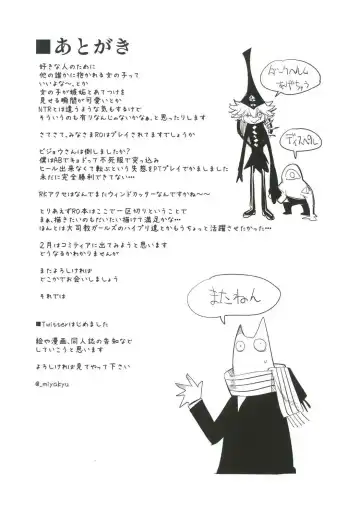 ■あとがき
好きな人のために
他の誰かに抱かれる女の子って
いいよな〜、とか
女の子が嫉妬とあてつけを
見せる瞬間が可愛いとか
NTRとは違うような気もするけど
そういうのも有りなんじゃないかなぁ、と思ったりします
さてさて、みなさまROはプレイされてますでしょうか
ビジョウさんは倒しましたか?
僕はABでキョドって不死服で突っ込み
ヒール出来なくて転ぶという失態をPTプレイでかましました
未だに完全勝利できてない…
RKアクセはなんでまたウィンドカッターなんですかね〜〜
とりあえずRO本はここで一区切りということで
まぁ、描きたいのもだいたい描けて満足かな…
ほんとは大司教ガールズのハイプリ達とかもうちょっと活躍させたかった…
2月はコミティアに出てみようと思います
どうなるかわかりませんが
またよろしければ
どこかでお会いしましょう
それでは
■Twitterはじめました
絵や漫画、同人誌の告知などを
していこうと思います
よろしければ見てやって下さい
@_miyakyu
ダークヘルム
あげちゃう
ディスペル
またねん